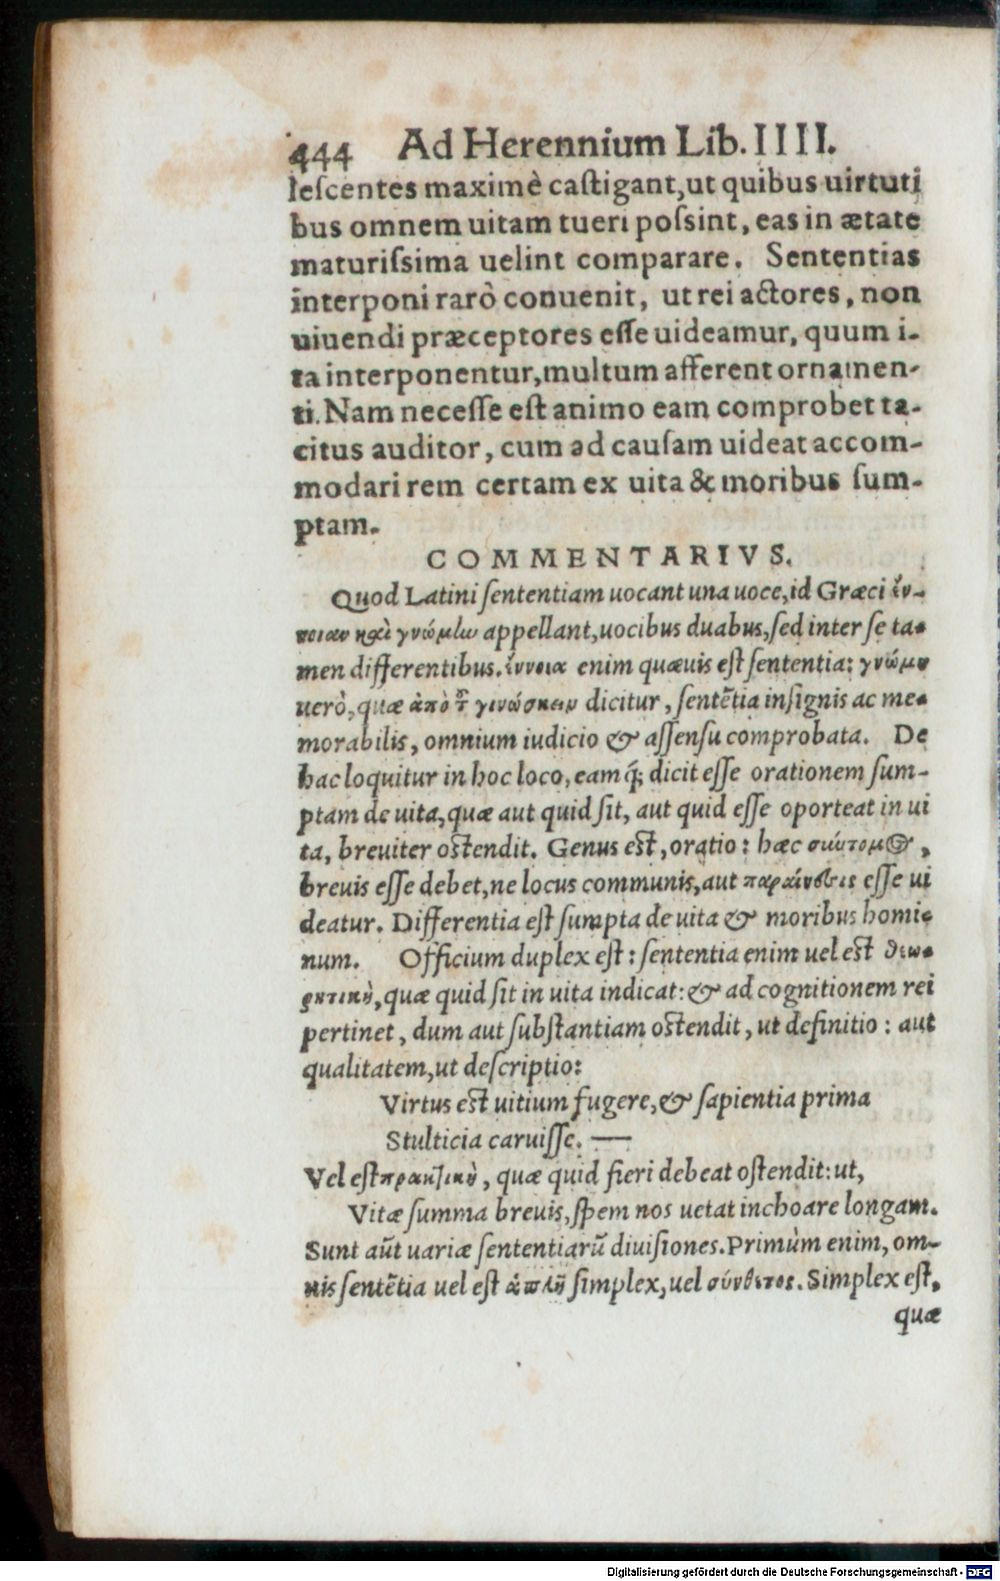 444 Ad Herennium Lib. IIII.
lescentes maximè castigant, ut quibus uirtuti
bus omnem uitam tueri possint, eas in ætate
maturissima uelint comparare. Sententias
interponi rarò conuenit, ut rei actores, non
uiuendi præceptores esse uideamur, quum i-
ta interponentur, multum afferent ornamen-
ti. Nam necesse est animo eam comprobet ta-
citus auditor, cum ad causam uideat accom-
modari rem certam ex uita & moribus sum-
ptam.
COMMENTARIVS.
Quod Latini sententiam uocant una uoce, id Græci ἔν-
νοιαν καὶ γνώμίω appellant, uocibus duabus, sed inter se ta-
men differentibus. ἔννοια enim quæuis est sententia: γνώμη
uerò, quæ ἀπὸ τ̃ γινώσκειν dicitur, sentẽtia insignis ac me-
morabilis, omnium iudicio & assensu comprobata. De
hac loquitur in hoc loco, eamq́; dicit esse orationem sum-
ptam de uita, quæ aut quid sit, aut quid esse oporteat in ui
ta, breuiter ostendit. Genus est, oratio: hæc σύντομος,
breuis esse debet, ne locus communis, aut παραίνεσις esse ui
deatur. Differentia est sumpta de uita & moribus homi-
num. Officium duplex est: sententia enim uel est θεω-
ρητικὴ, quæ quid sit in uita indicat: & ad cognitionem rei
pertinet, dum aut substantiam ostendit, ut definitio: aut
qualitatem, ut descriptio:
Virtus est uitium fugere, & sapientia prima
Stulticia caruisse. —
Vel est πρακτικὴ, quæ quid fieri debeat ostendit: ut,
Vitæ summa breuis, spem nos uetat inchoare longam.
Sunt aũt uariæ sententiarũ diuisiones. Primùm enim, om-
nis sentẽtia uel est ἁπλῆ simplex, uel σύνθετος. Simplex est,
quæ
Digitalisierung gefördert durch die Deutsche Forschungsgemeinschaft - DFG